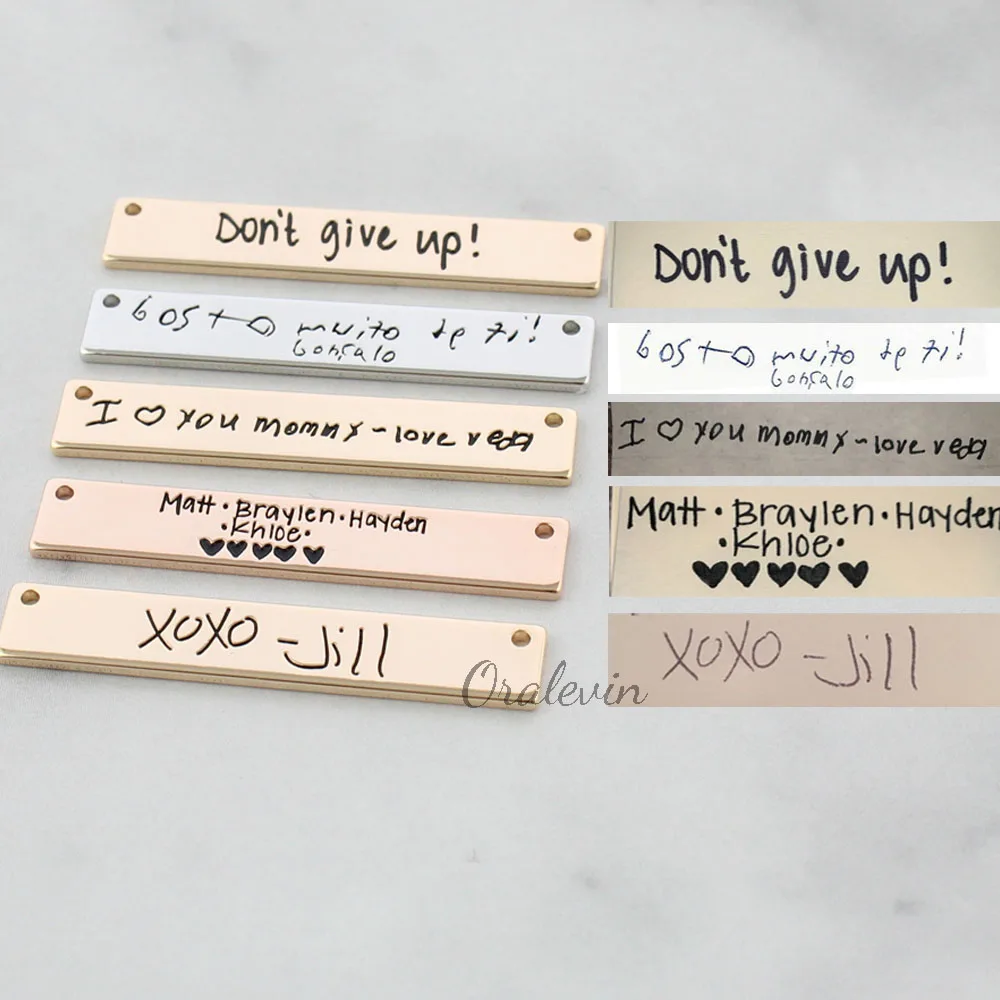 Don't give up!
Don't give up!
Gosto muito de ti!
Gonçalo
Gosto muito de ti!
Gonçalo
I ♡ you mommy ~ love veda
I ♡ you mommy ~ love veda
Matt • Braylen • Hayden
• Khloe •
♥♥♥♥♥
Matt • Braylen • Hayden
• Khloe •
♥♥♥♥♥
XOXO - Jill
XOXO - Jill
Oralevin